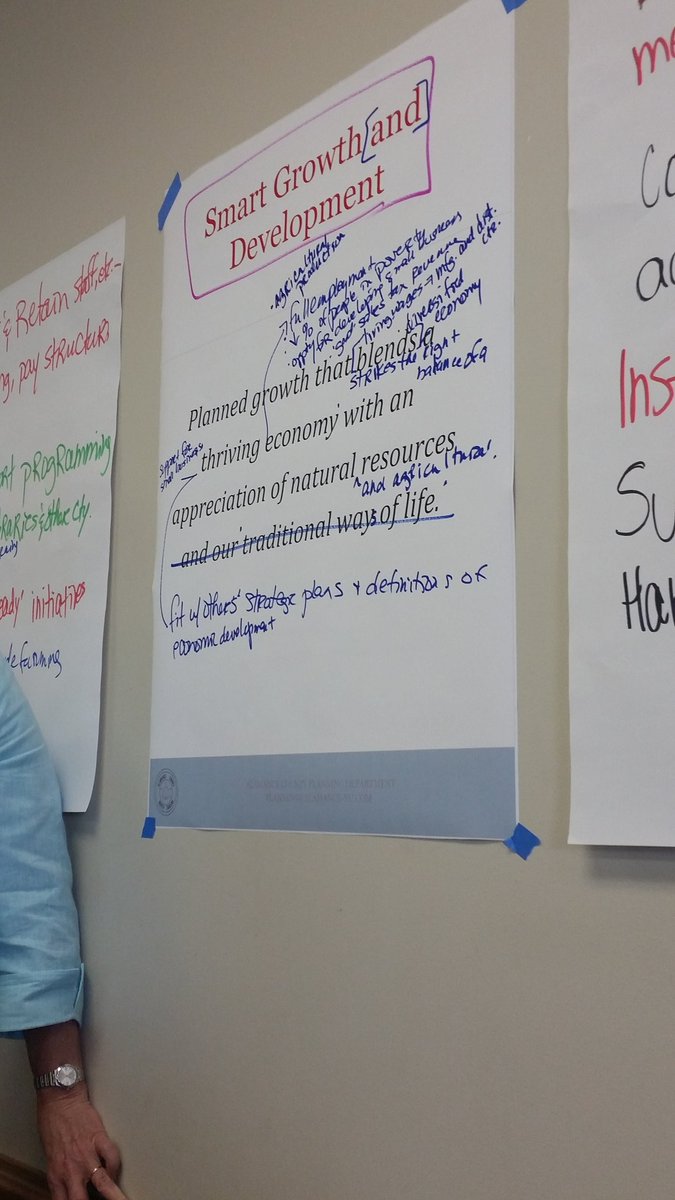 & Retain staff, etc.-
ng, pay structure
ort programming
raries & other cty.
eady' initiatives
de farming
Smart Growth [and]
Development
• agricultural
production
→ full employment
• ↓ % of people in poverty
• oppty for developing & small business
thriving wages → mfg. and dist. ctr.
diversified
economy
strikes the right
balance of a
Planned growth that blends a
support for
small businesses
thriving economy with an
appreciation of natural resources
^ and agricultural.
and our traditional ways of life.
fit w/ others' strategic plans & definitions of
economic development
ALAMANCE COUNTY PLANNING DEPARTMENT
me
Co
ac
Ins
Su
Har